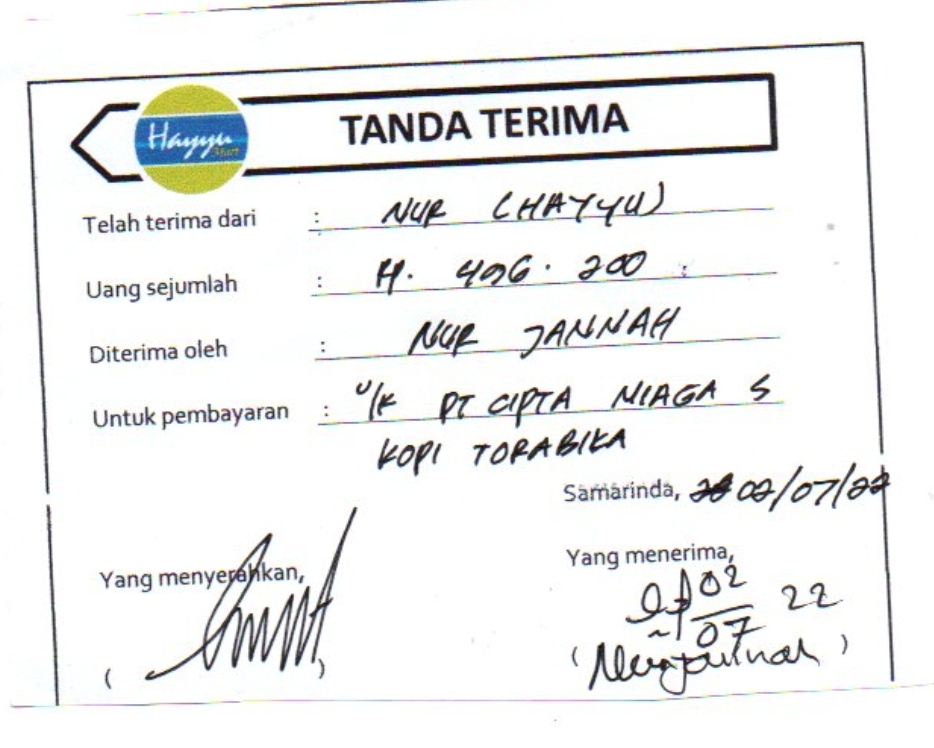 Hayyu Mart
TANDA TERIMA
Telah terima dari : NUR (HAYYU)
Uang sejumlah : 496.200
Diterima oleh : NUR JANNAH
Untuk pembayaran : U/K PT CIPTA NIAGA S
KOPI TORABIKA
Samarinda, 02/07/22
Yang menyerahkan,
Yang menerima,
02
07 22
( )
( Nurjannah )